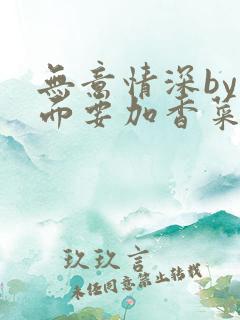 無意情深by
而要加香菜
玖玖言
未经同意禁止转载